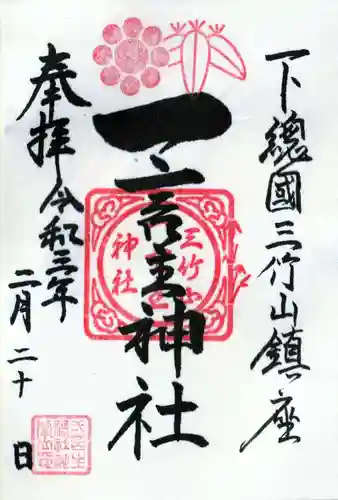 下總國三竹山鎮座
一言主神社
三竹山
神社
奉拝 令和三年
二月二十日